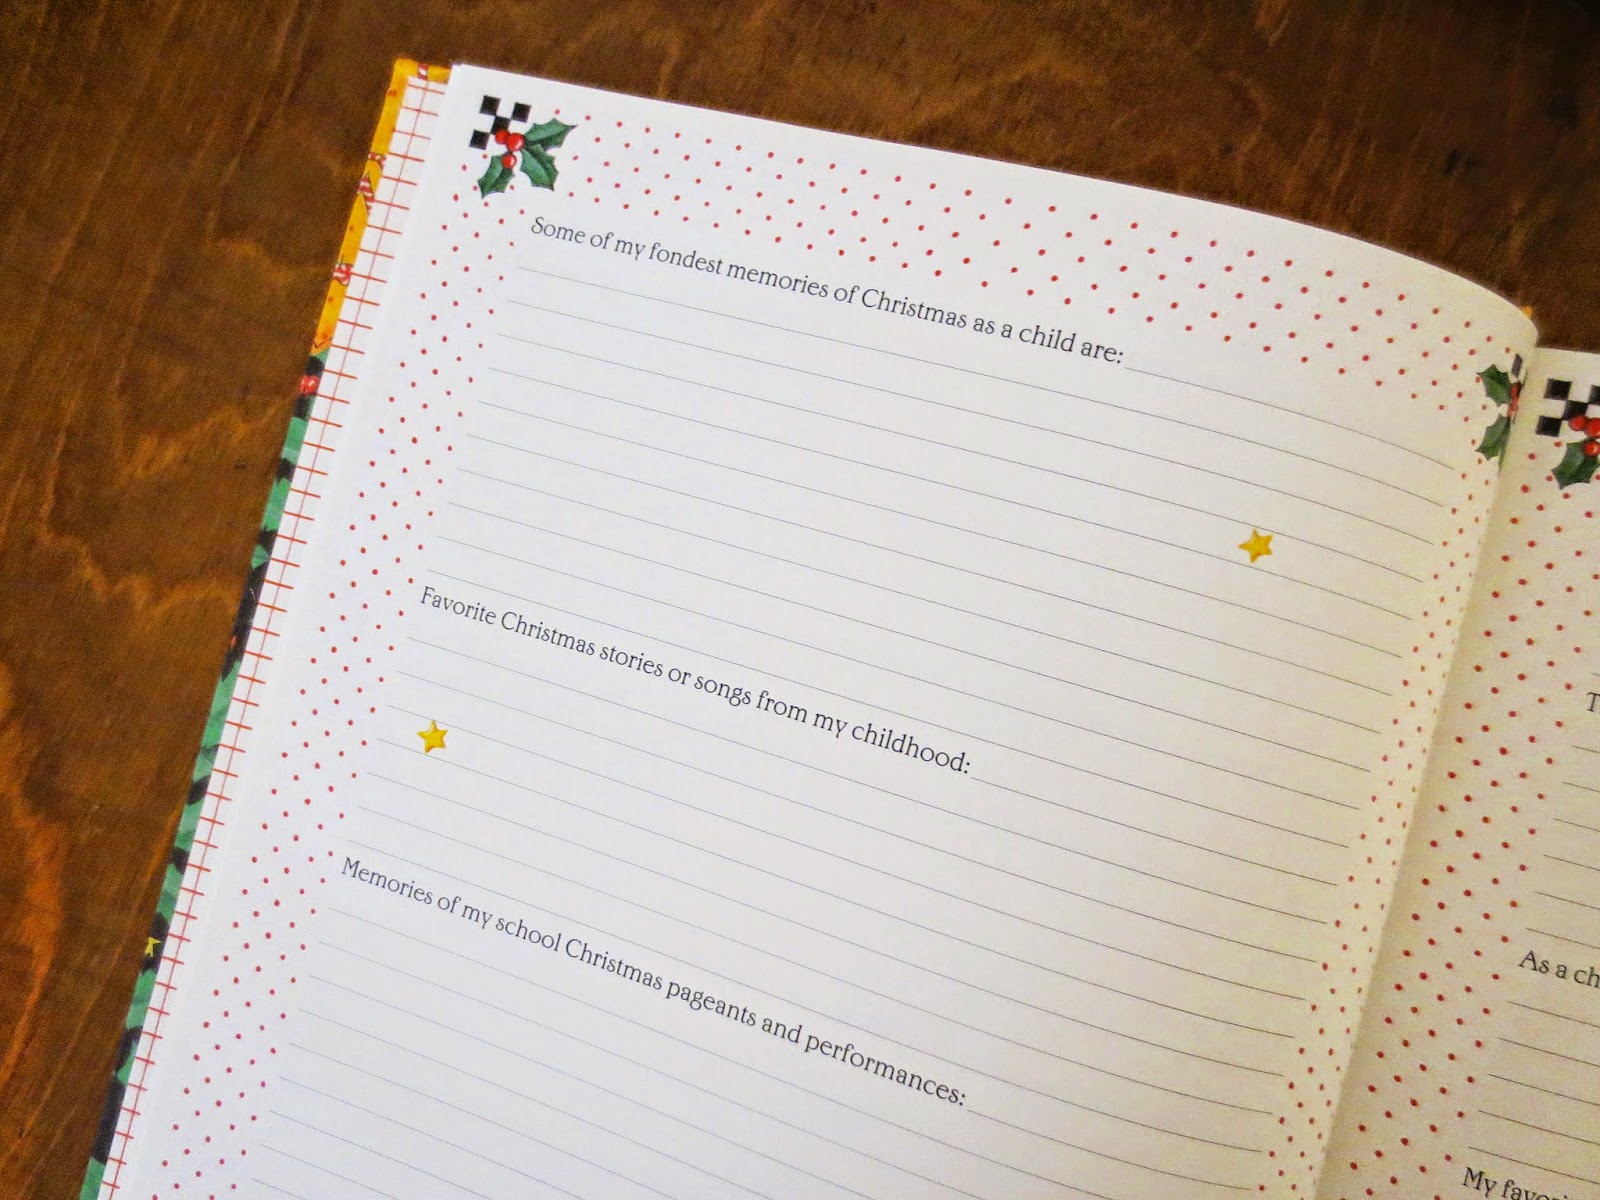 Some of my fondest memories of Christmas as a child are:
Favorite Christmas stories or songs from my childhood:
Memories of my school Christmas pageants and performances:
As a
My